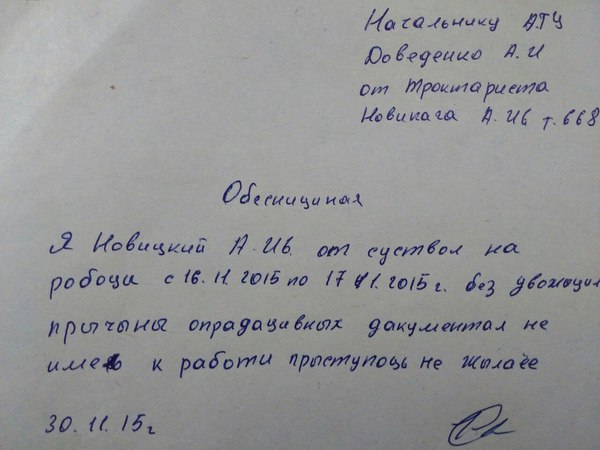 Начальнику АТЦ
Доведенко А.И
от трактариста
Новикага А.Ив т.668
Обеснициная
Я Новицкий А.Ив. от суствол на
робоци с 16.11.2015 по 17.11.2015г. без увожицил
прычыны опрадацивных дакументал не
имею к работи прыступоць не жылаее
30.11.15г